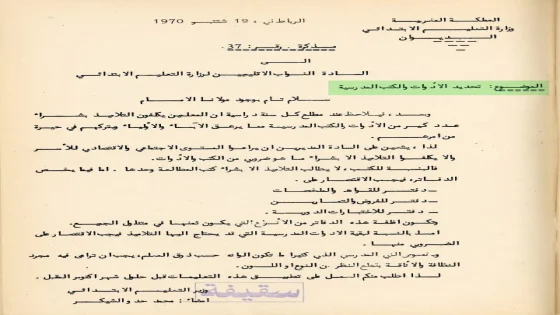 المملكة المغربية
وزارة التعليم الابتدائي
الديوان
الرباط في ، 19 شتنبر 1970
مذكرة رقم : 37
الى
السادة النواب الاقليميين لوزارة التعليم الابتدائي
الموضوع : تحديد الأدوات والكتب المدرسية
سلام تام بوجود مولانا الامام
وبعد ، فيلاحظ عند مطلع كل سنة دراسية ان المعلمين يكلفون التلاميذ بشراء
عدد كبير من الأدوات والكتب المدرسية مما يرهق الآباء والأولياء ويتركهم في حيرة
من امرهم .
لذا ، يتعين على السادة المديرين ان يراعوا المستوى الاجتماعي والاقتصادي للأسر
والا يكلفوا التلاميذ الا بشراء ما هو ضروري من الكتب والأدوات .
فبالنسبة للكتب ، لا يطالب التلاميذ الا بشراء كتب المطالعة وحدها . اما فيما يخص
الدفاتر ، فيجب الاقتصار على .
ـ دفتر للقواعد والملخصات
ـ دفتر للفروض والتمارين
ـ دفتر للاختبارات الدورية .
وتكون اغلفة هذه الدفاتر من الأنواع التي يكون ثمنها في متناول الجميع .
اما بالنسبة لبقية الادوات المدرسية التي قد يحتاج اليها التلاميذ فيجب الاقتصار على
الضروري منها .
الزي المدرسي الذي كثيرا ما تكون الوانه حسب ذوق المعلم ، يجب ان تراعى فيه مجرد
النظافة والأناقة بقطع النظر عن النوع او اللون .
لذا اطلب منكم العمل على تطبيق هذه التعليمات قبل حلول شهر اكتوبر المقبل .
وزير التعليم الابتدائي
امضاء : محمد حدو الشيكر
سقيفة